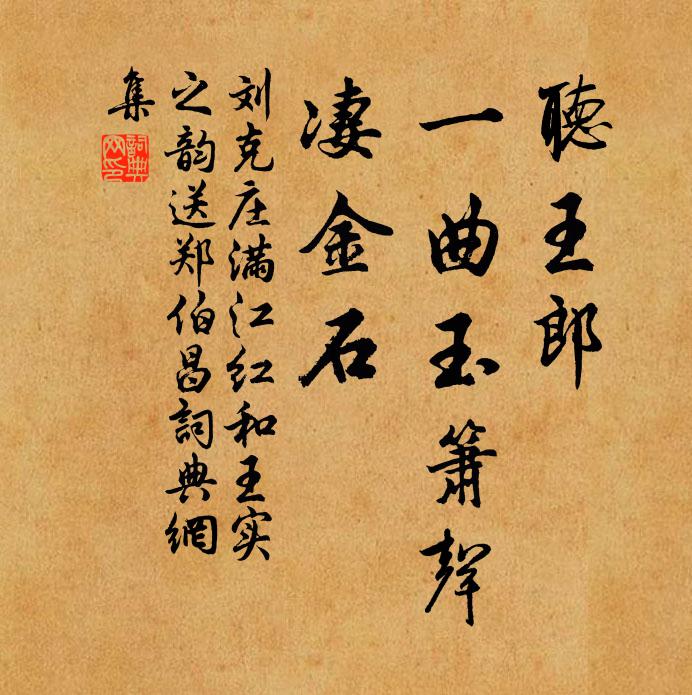 聽王郎
一曲玉簫聲
凄金石
刘克庄满江红和王实
之韵送郑伯昌詞典網
集
詞典網印